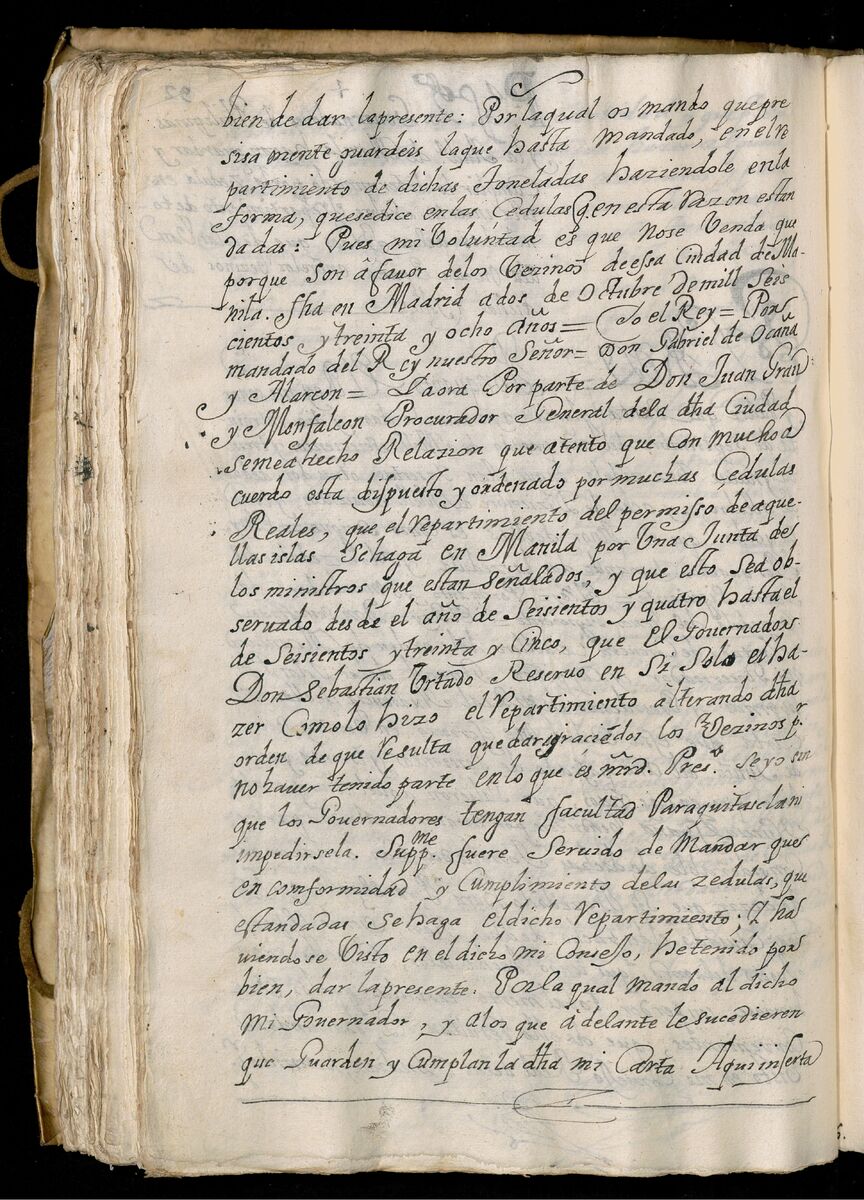 bien de dar lapresente: Por laqual os mando que pre
sisamente guardeis laque hasta mandado, en el re
partimiento de dichas Toneladas haziendole enla
forma, quesedice enlas Cedulas q. en esta razon estan
dadas: Pues mi Voluntad es que nose Venda que
porque son â favor delos Vezinos deessa Ciudad de Ma-
nila. fha en Madrid ados de Octubre demill Seis
cientos ytreinta y ocho años = Yo el Rey = Por
mandado del Rey nuestro Señor = Don Gabriel de Ocaña
y Alarcon = Yaora Por parte de Don Juan Grau
y Monfalcon Procurador General dela dha Ciudad
semeahecho Relazion que atento que Con mucho a
cuerdo esta dispuesto y ordenado por muchas Cedulas
Reales, que el repartimiento del permisso de aque-
llas islas sehaga en Manila por Una Junta de
los ministros que estan señalados, y que esto sea ob-
servado desde el año de Seisientos y quatro hasta el
de Seisientos ytreinta y Cinco, que El Governador
Don Sebastian Urtado Reservo en Si Solo el ha-
zer Como lo hizo el repartimiento alterando dha
orden de que resulta quedar graciãdos los Vezinos pr.
no haver tenido parte en lo que és mrd. Presa. Seyo sin
que los Governadores tengan facultad Para quitasela ni
impedirsela. Suppme. fuere Servido de Mandar que
en comformidad y Cumplimiento delas zedulas, que
estandadas Sehaga eldicho repartimiento; Y ha
viendose Visto en el dicho mi Consejo, hetenido por
bien, dar lapresente. Por la qual mando al dicho
Mi Governador, y alos que adelante le sucedieren
que Guarden y Cumplan la dha mi Carta Aqui inserta